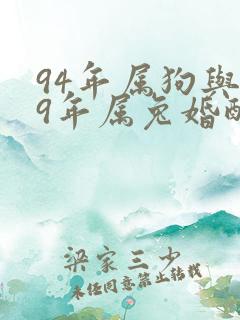 94年属狗與
9年属兔婚配
梁家三少
未经同意禁止转载